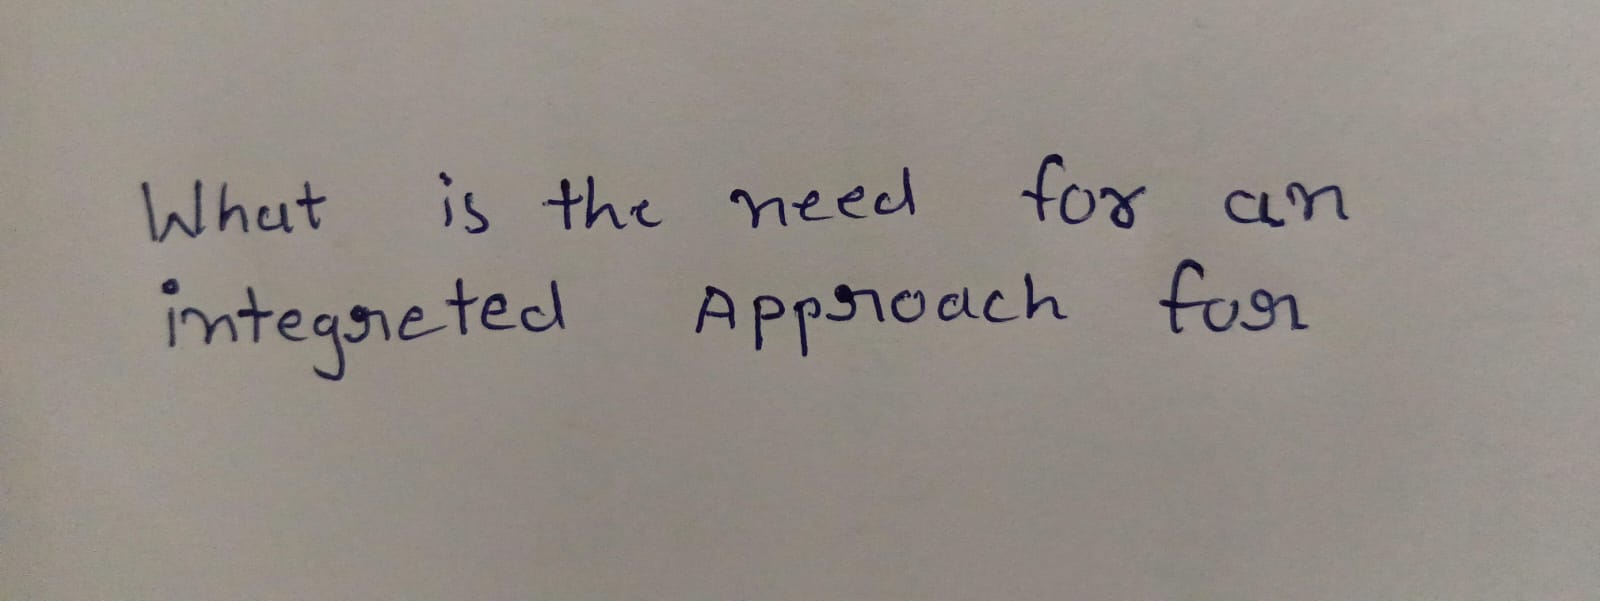 What is the need for an
integreted Approach for